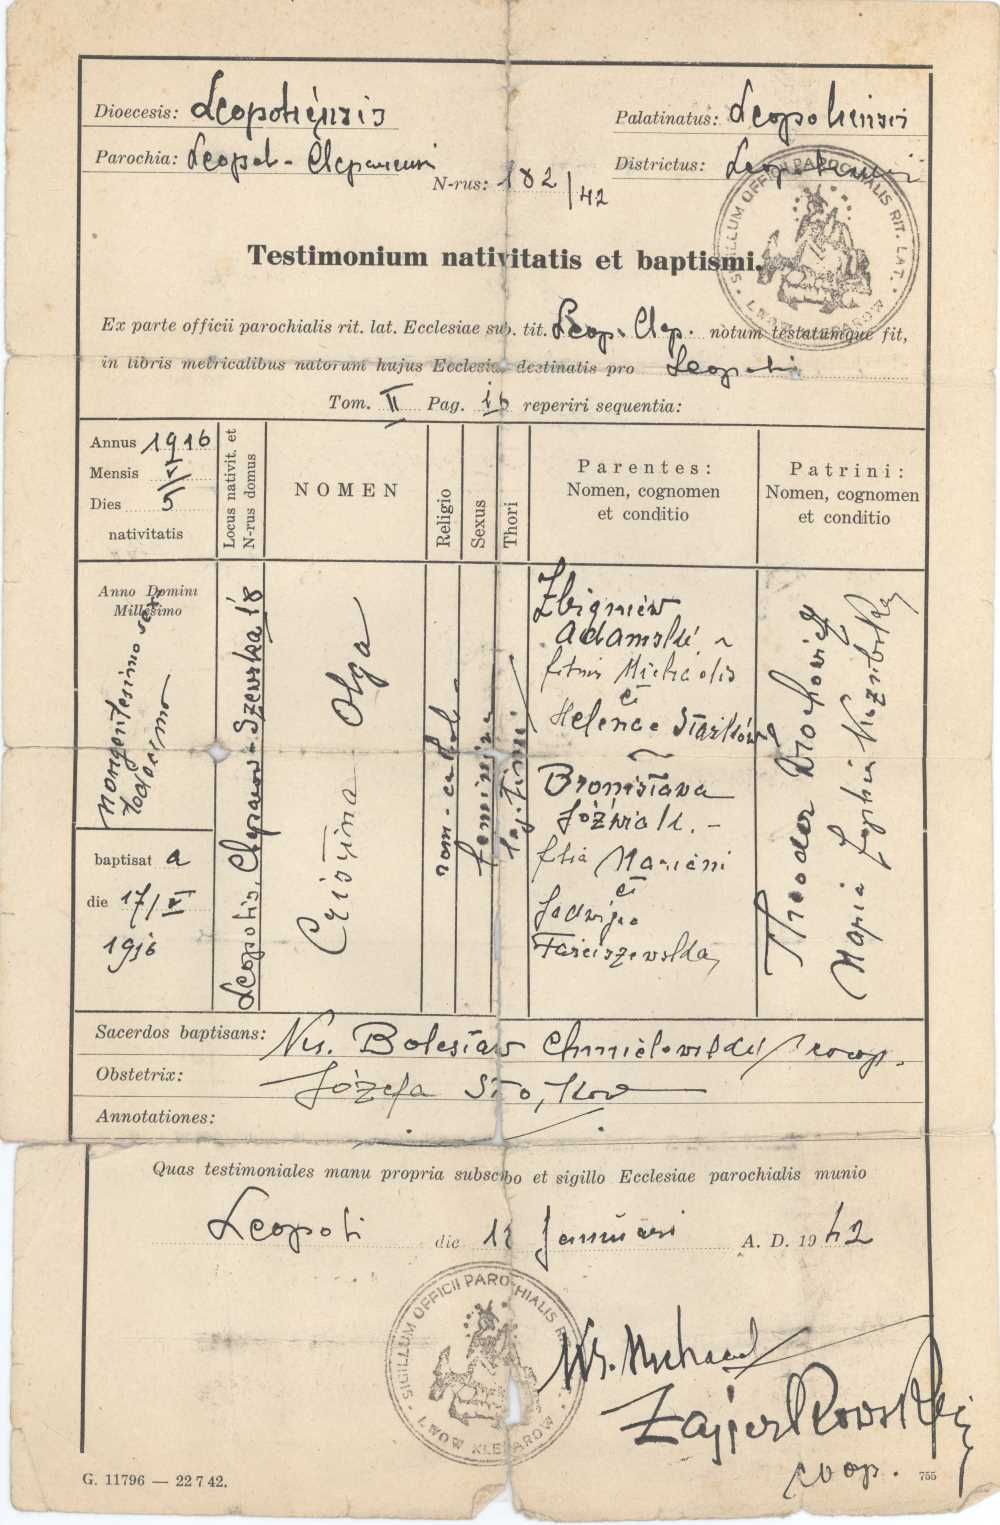 Dioecesis: Leopoliensis
Palatinatus: Leopoliensis
Parochia: Leopol - Cleparoviensi
Districtus:
N-rus: 182/42
SIGILLUM OFFICII PAROCHIALIS RIT. LAT.
LWOW KLEPAROW
Testimonium nativitatis et baptismi.
Ex parte officii parochialis rit. lat. Ecclesiae sub. tit. Leop. Clep. notum testatumque fit,
in libris metricalibus natorum hujus Ecclesiae destinatis pro Leopoli
Tom. II Pag. 16 reperiri sequentia:
Annus 1916
Mensis
Dies 5
nativitatis
Locus nativit. et
N-rus domus
NOMEN
Religio
Sexus
Thori
Parentes:
Nomen, cognomen
et conditio
Patrini:
Nomen, cognomen
et conditio
Anno Domini
Millesimo
nongentesimo
baptisat a
die 17/
1916
Leopolis, Cleparow Szewska 18
Olga
rom-cath.
feminina
legitimi
Zbigniew
Adamski
filius Michaelis
et
Helenae
Bronisława
Jóźwiak. -
filia Mariani
et
Jadwigae
Theodor
Maria Zophia
Sacerdos baptisans: Ks. Bolesław Chmielowski
Obstetrix: Józefa
Annotationes:
Quas testimoniales manu propria subscribo et sigillo Ecclesiae parochialis munio
Leopoli die 12 Januari A. D. 1942
SIGILLUM OFFICII PAROCHIALIS
LWOW KLEPAROW
Ks. Michael
coop.
G. 11796 — 22 7 42.
755